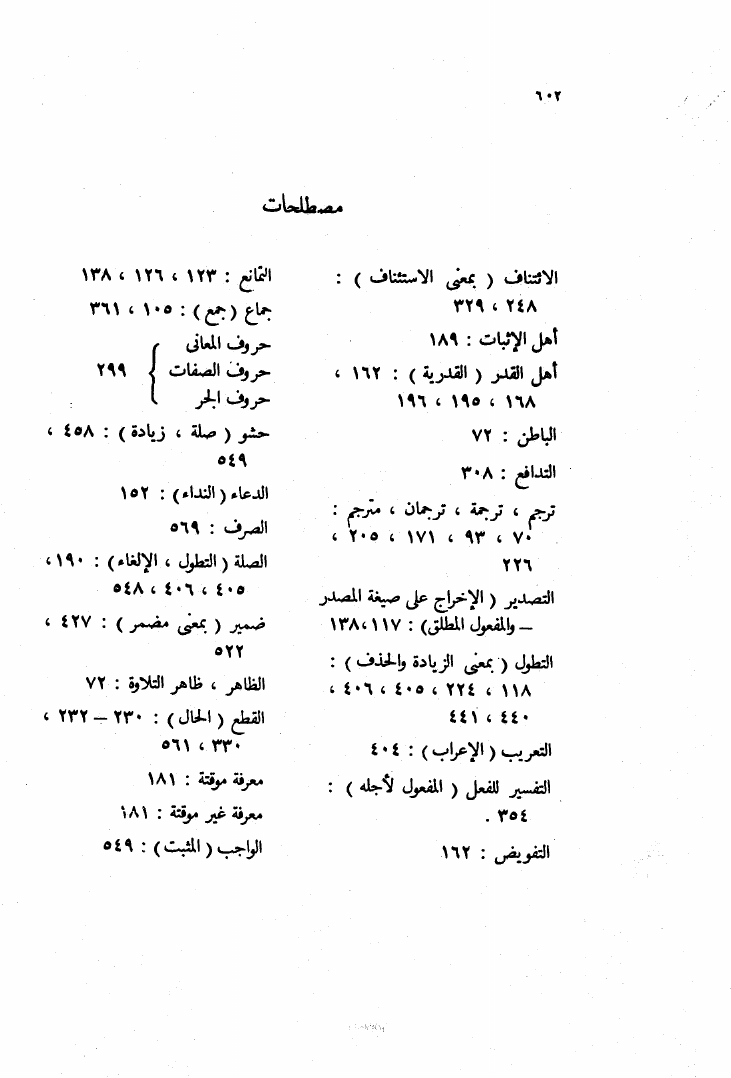 ٦٠٢
مصطلحات
الائتناف ( بمعنى الاستئناف ) :
٢٤٨ ، ٣٢٩
أهل الإثبات : ١٨٩
أهل القدر ( القدرية ) : ١٦٢ ،
١٦٨ ، ١٩٥ ، ١٩٦
الباطن : ٧٢
التدافع : ٣٠٨
ترجم ، ترجمة ، ترجمان ، مترجم :
٧٠ ، ٩٣ ، ١٧١ ، ٢٠٥ ،
٢٢٦
التصدير ( الإخراج على صيغة المصدر
– والمفعول المطلق) : ١١٧ ،١٣٨
التطول ( بمعنى الزيادة والحذف ) :
١١٨ ، ٢٢٤ ، ٤٠٥ ، ٤٠٦ ،
٤٤٠ ، ٤٤١
التعريب ( الإعراب ) : ٤٠٤
التفسير للفعل ( المفعول لأجله ) :
٣٥٤ .
التفويض : ١٦٢
التمانع : ١٢٣ ، ١٢٦ ، ١٣٨
جماع ( جمع ) : ١٠٥ ، ٣٦١
حروف المعانى
حروف الصفات } ٢٩٩
حروف الجر
حشو ( صلة ، زيادة ) : ٤٥٨ ،
٥٤٩
الدعاء ( النداء ) : ١٥٢
الصرف : ٥٦٩
الصلة ( التطول ، الإلغاء ) : ١٩٠ ،
٤٠٥ ، ٤٠٦ ، ٥٤٨
ضمير ( بمعنى مضمر ) : ٤٢٧ ،
٥٢٢
الظاهر ، ظاهر التلاوة : ٧٢
القطع ( الحال ) : ٢٣٠ – ٢٣٢ ،
٣٣٠ ، ٥٦١
معرفة موقتة : ١٨١
معرفة غير موقتة : ١٨١
الواجب ( المثبت ) : ٥٤٩